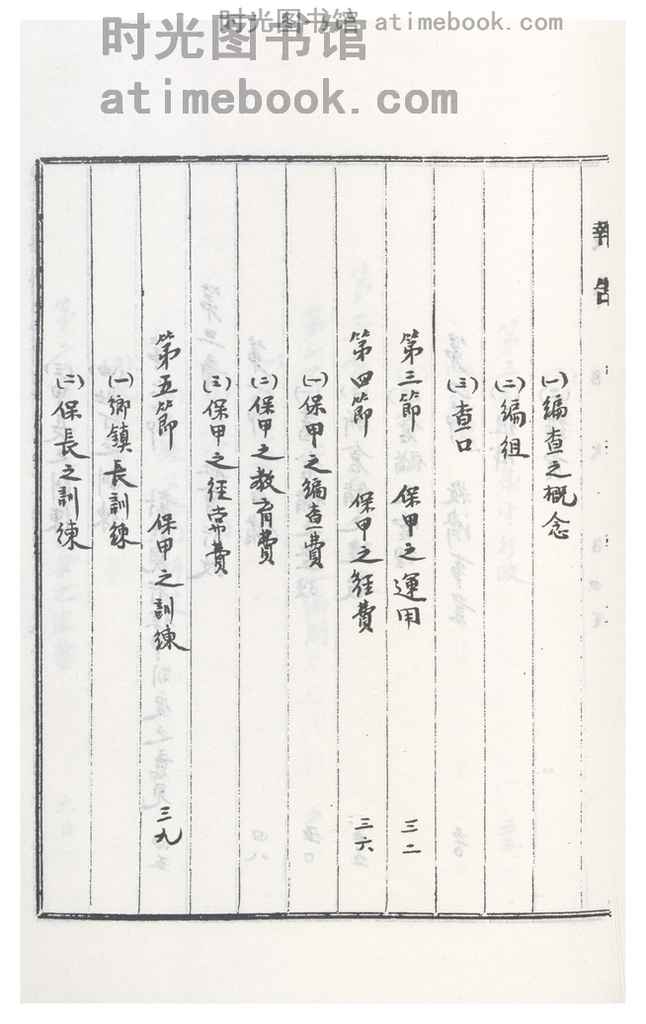 时光图书馆 atimebook.com
时光图书馆
atimebook.com
報告
(一)編查之概念
(二)編组
(三)查口
第三節 保甲之運用 三二
第四節 保甲之経費 三六
(一)保甲之編查費
(二)保甲之教育費
(三)保甲之経常費
第五節 保甲之訓練 三九
(一)鄉鎮長訓練
(二)保長之訓練